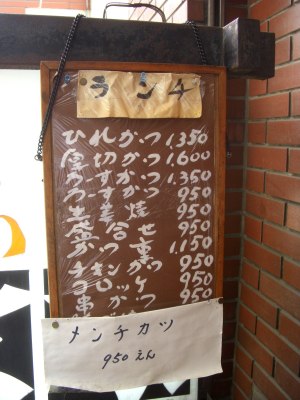 ランチ
ひれかつ 1,350
厚切かつ 1,600
かつ 1,350
かつ 950
生姜焼 950
盛合せ 950
かつ重 1,150
チキンかつ 950
950
串かつ 950
メンチカツ
950えん